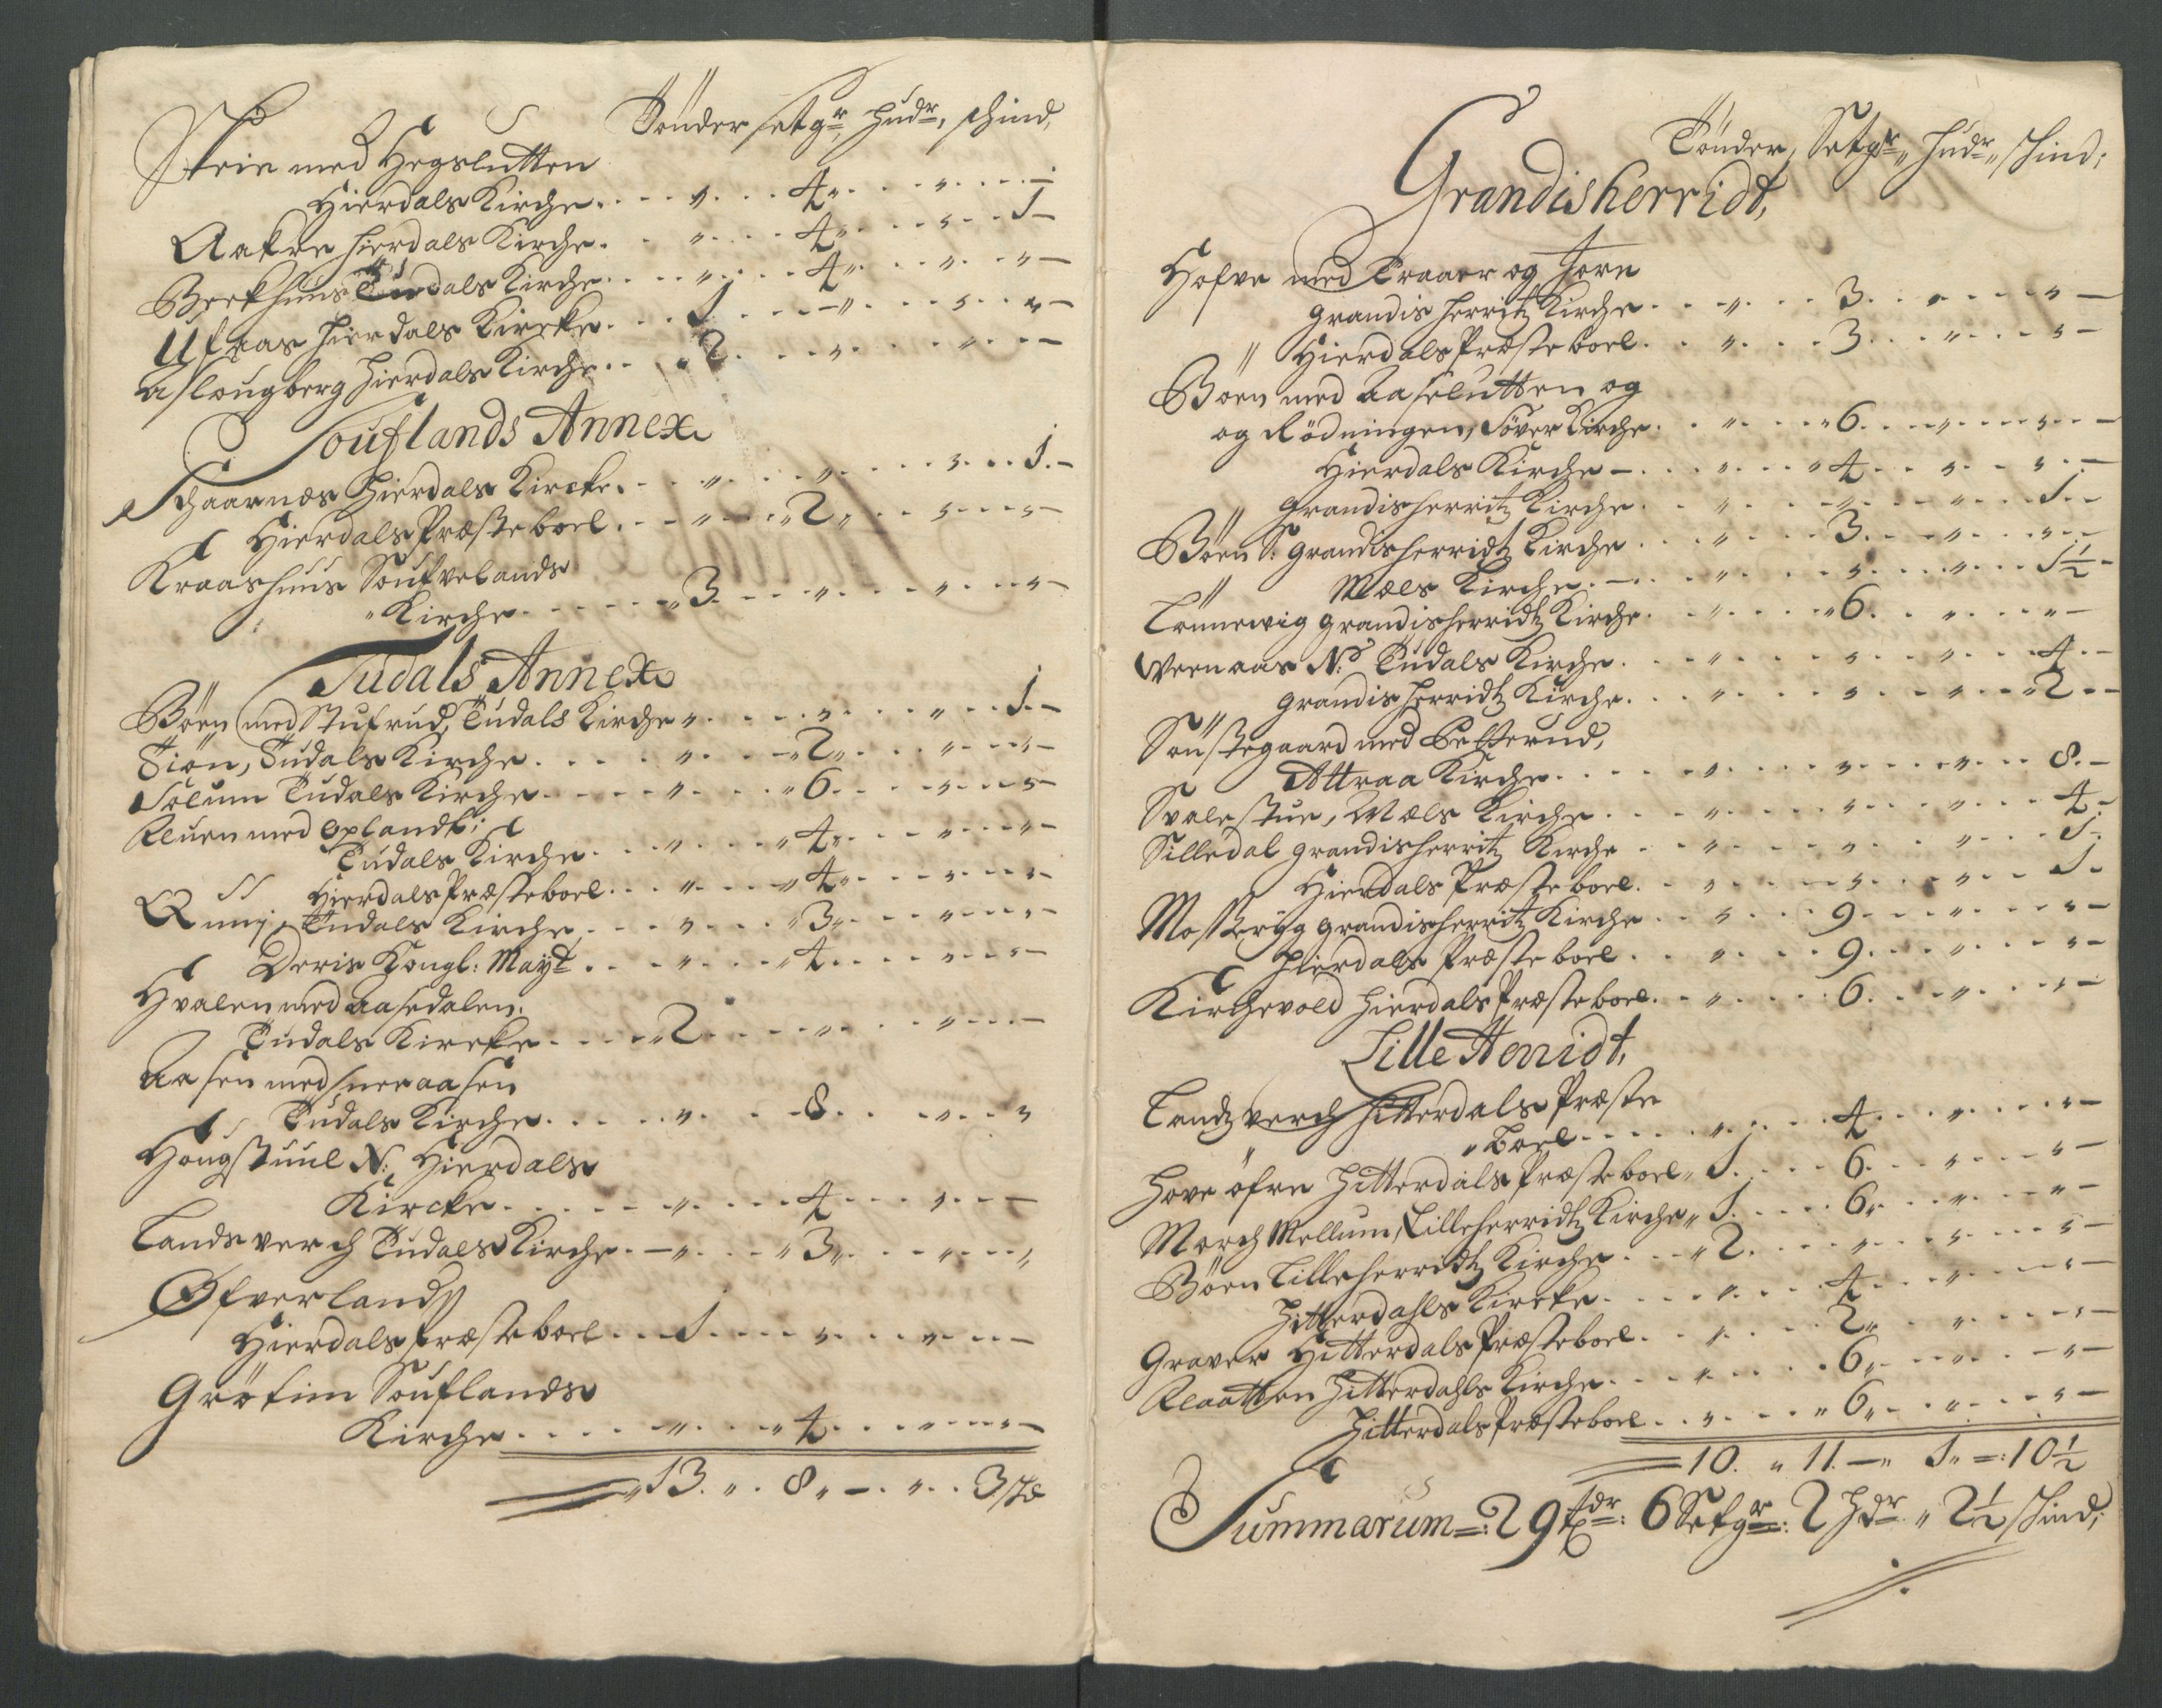 Tönder setgr, hudr, schind,
Stein med Hegslutten
Hierdals Kirche. . . . „ . . . 4 „ . . . „ . . . . –
Aakre Hierdals Kirche. . „ . . . 4 „ . . . „ . . . 1 –
Berkhuus Tudals Kirche. . . . „ . . . 4 „ . . „ . . „ –
Ufaas Hierdals Kircke. . . 1 . . . – „ . . . „ . . „ –
Aslougberg Hierdals Kirche. . „ 2. . . . „ . . . „ . . –
Souflands Annex
Schaarnæs Hierdals Kircke. . . „ . . . „ . . . . „ . . . 1. –
Hierdals Præsteboel. . . „ . . . „ 2 „ . . „ . . . „ –
Kraashuus Soufvelands
„ Kirche. . . . . . „ 3. . . . „ . . . . „ . . . „ –
Tudals Annex
Böen med Stufrud, Tudals Kirche „ . . . . „ . . . . „ . . . 1. –
Tiön, Tudals Kirche. . . . . „ . . . – „ 2 „ . . . „ . . . „ –
Solum Tudals Kirche. . . . . „ . . . . „ 6. . . . „ . . . „ –
Kluen med Oplandt;
Tudals Kirche. . . „ . . . . „ 4 „ . . . „ . . . „ –
Hierdals Præsteboel. . . „ . . . „ 4 „ . . . „ . . . „ –
Quni, Tudals Kirche, . . . „ . . . . „ 3 „ . . . „ . . . „ –
Deris Kongl: Mayt . . . . „ . . . . „ 4. . . . „ . . . „ –
Hvalen med Aasedalen.
Tudals Kircke. . . . „ 2. . . . . „ . . . . „ . . . –
Aasen med Sneraasen
Tudals Kirche. . . . . „ . . . – 8. . . . „ . . . „
Hougstuul N: Hierdals
Kircke. . . . . . „ . . . . 4. . . . „ . . . –
Landsverch Tudals Kirche. – „ . . . „ 3 „ . . . „ . . . „
Øfverlands
Hierdals Præsteboel. . . 1. . . . . „ . . . „ . . . –
Grötim Souflands
Kirche. . . . . . „ . . . „ 4. . . . „ . . . „ –
„ 13. „ . 8 „ – . „ . . 3 stæ
Tönder, Setgr „ hudr „ schind;
Grandisherridt,
Hofve med Traaer og Jorn
Grandisherritz Kirche. . . „ . . . . 3. . . „ . . . . „ –
„ Hierdals Præsteboel. . . „ . . . . 3. . . . „ . . . „ –
Böen med Aaslutten og
og Rödningen, Söver Kirche. . „ . . . „ 6. . . . „ . . . . „ . . –
Hierdals Kirche – . . . „ . . . . „ 4. . . „ . . . „ . –
„ Grandisherritz Kirche. . . „ . . . . „ . . . . „ . . . 1. –
Böen S: Grandisherridtz Kirche . . . „ . . . . 3. . . . „ . . . „ –
„ Mæls Kirche. – . . . „ . . . . „ . . . . „ . . . 1½ –
Lönnevig Grandisherridtz Kirche. . „ . . . . „ 6. . . „ . . . „ –
Veenaas N: Tudals Kirche. . . . „ . . . . „ . . . „ . . . 4. –
Grandisherridtz Kirche. . . „ . . . . „ . . . „ . . „ 2. –
Söustegaard med
Attraa Kirche. . . . . „ . . . . „ . . . „ . . . 8. –
Svalestue, Mæls Kirche. . . . „ . . . . „ . . . „ . . . 4. –
Silledal Grandisherritz Kirche . . . „ . . . . „ . . . „ . . . 1. –
Hierdals Præsteboel. . . „ . . . . „ . . . „ . . . 1 –
Mosseryg Grandisherritz Kirche. . . „ . . . . 9. . . . „ . . . . „ –
Hierdals Præsteboel. . . „ . . . . 9. . . . „ . . . „ –
Kirchevold Hierdals Præsteboel. . . „ . . . . 6. . . „ . . . „ –
Lille Herridt,
Landzverch Hitterdals Præste
„ „ Boel. . . . . . „ . . . . 4. . . . „ . . . . „ –
Hove öfre Hitterdals Præsteboel „ 1. . . . . 6. . . . „ . . . . „ –
Morch Mellum, Lilleherridtz Kirche „ 1. . . . . 6 „ . . . „ . . . „ –
Böen Lilleherridtz Kirche. . . . „ 2. . . . . „ . . . . „ . . . . „ –
Hitterdahls Kircke. . . . . „ . . . . 4. . . . „ . . . . „ –
Graver Hitterdals Præsteboel. . . „ . . . . 2 „ . . . „ . . . . „ –
Klaatten Hitterdahls Kirche. . . . „ . . . . 6 „ . . . „ . . . „ –
Hitterdals Præsteboel. . . „ . . . . „ 6 „ . . . „ . . . „ –
10. „ 11. – „ 1 „ =: 10½
Summarum =: 29 tdr: 6 Setgr: 2 Hdr „ 2½ schind;